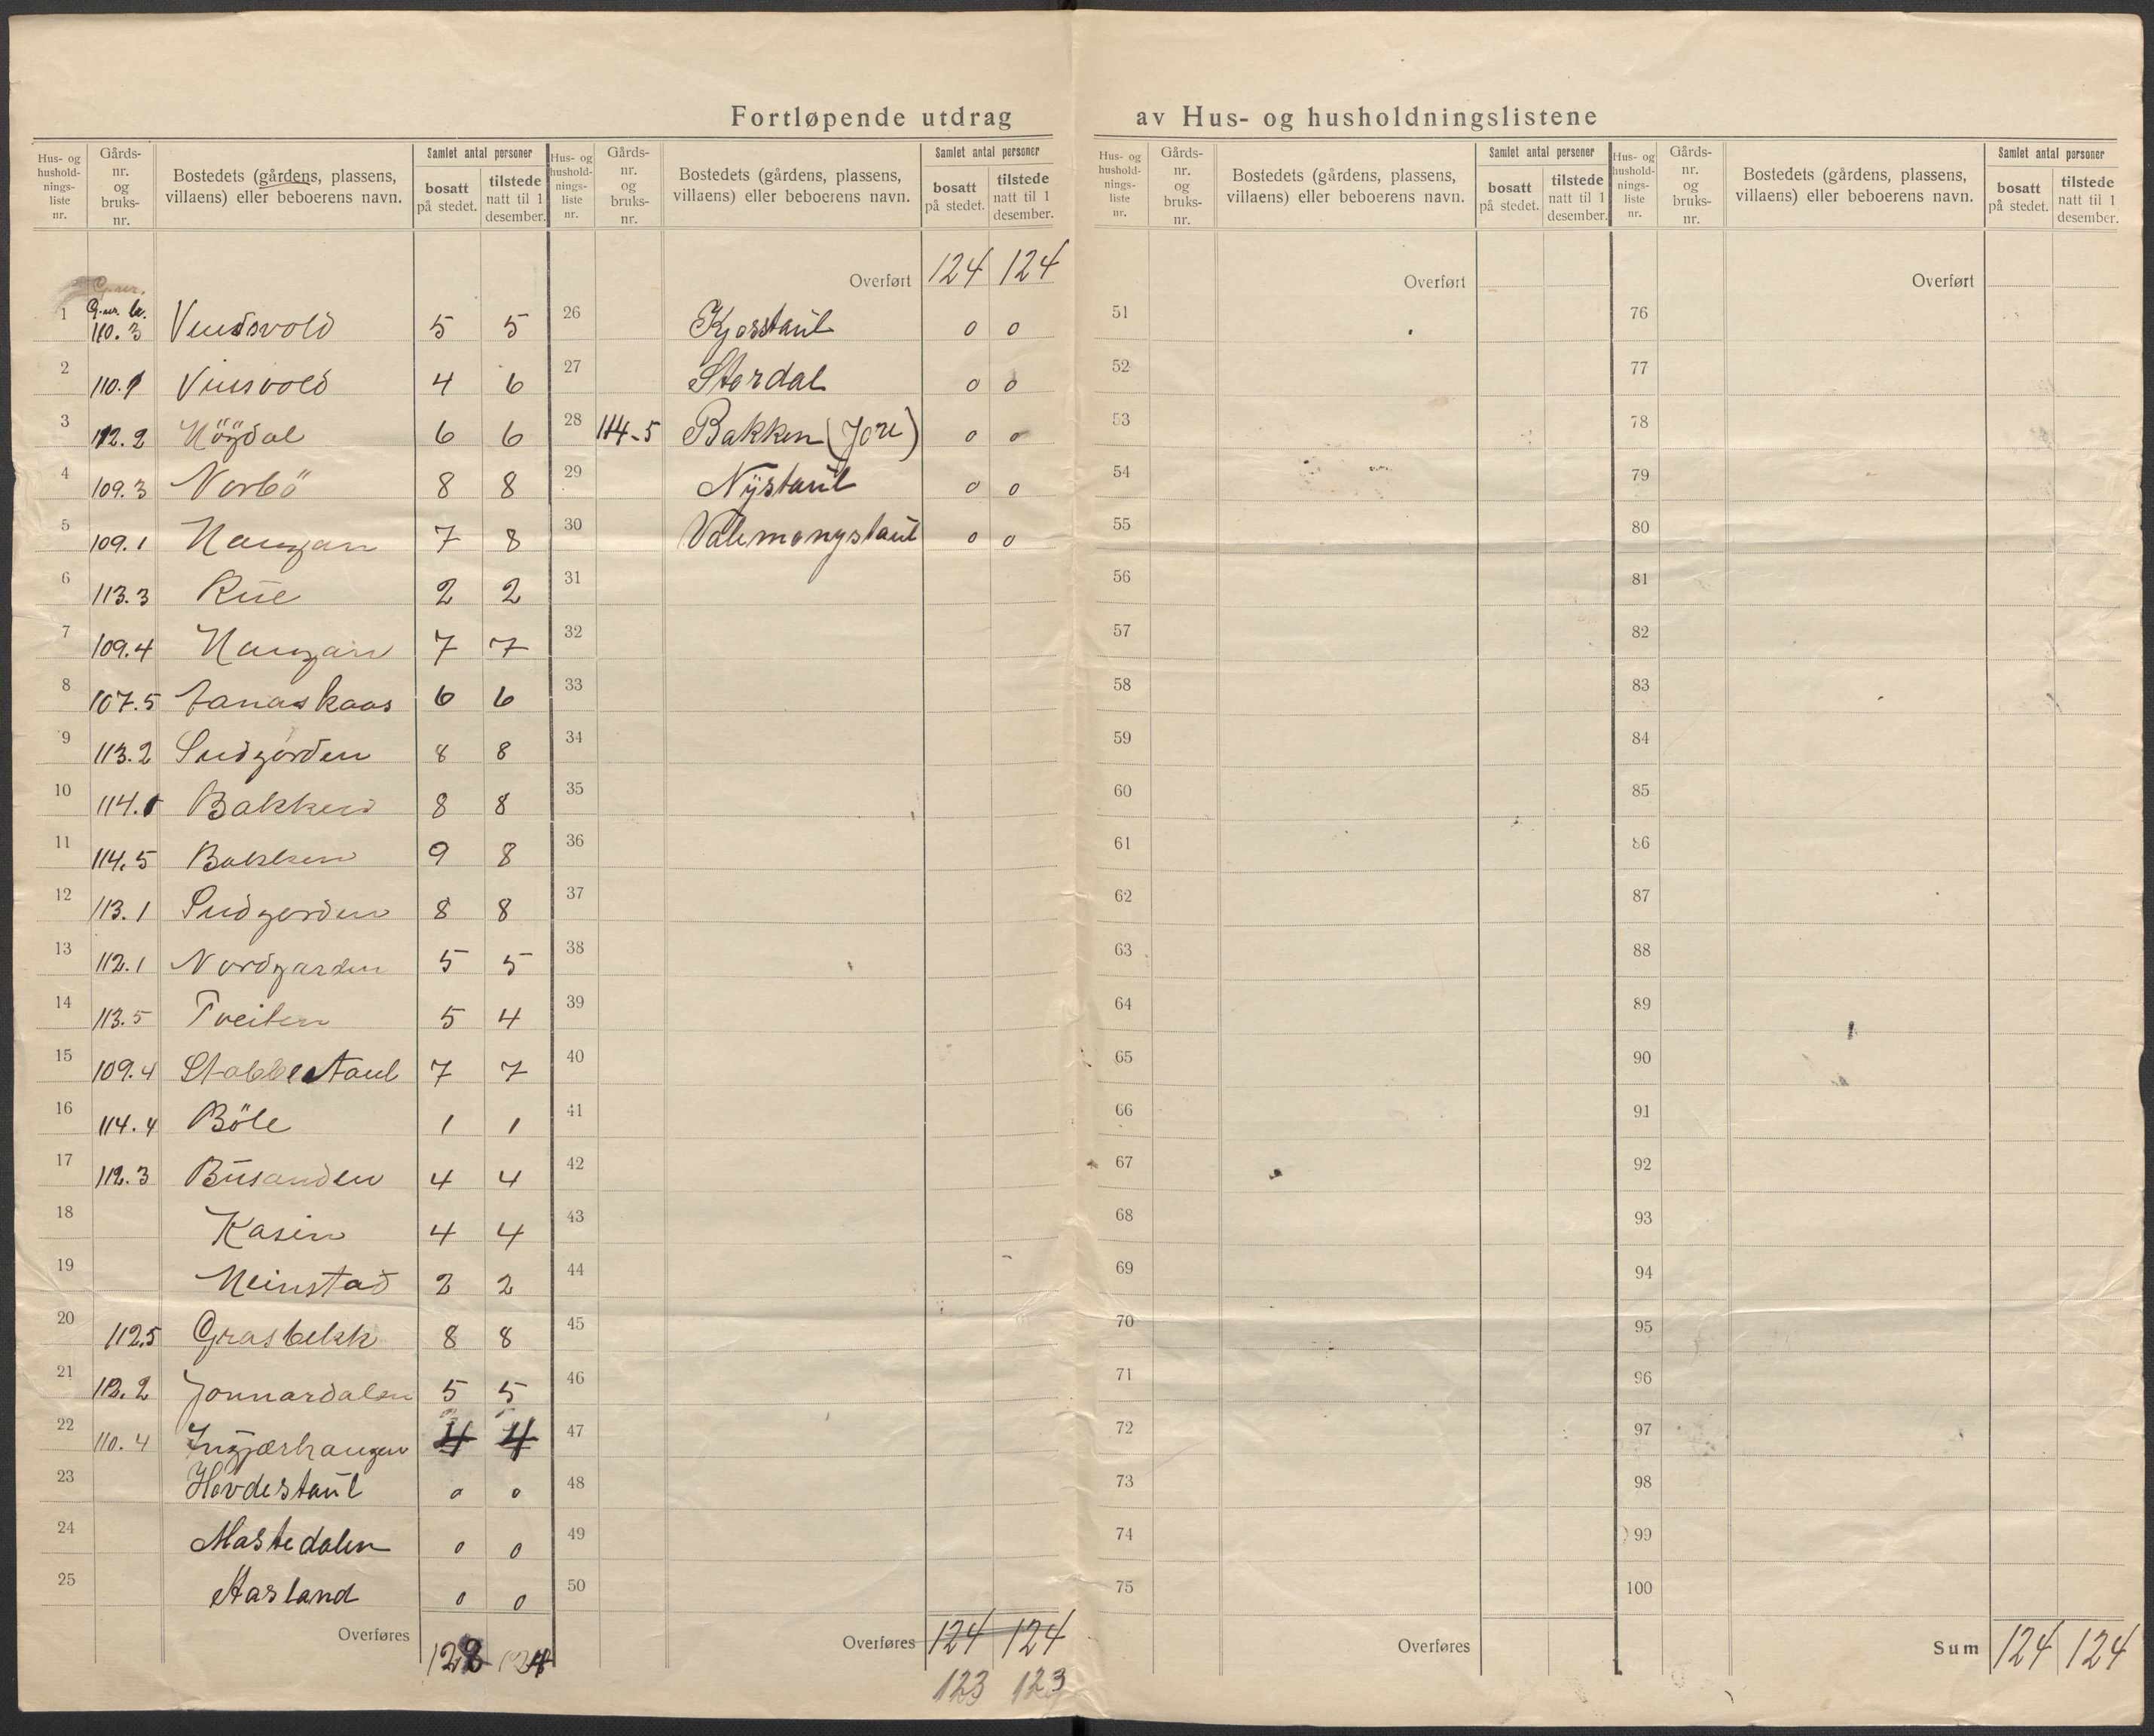 Fortløpende utdrag av Hus- og husholdningslistene
Hus- og hushold- nings- liste nr.
Gårds- nr. og bruks- nr.
Bostedets (gårdens, plassens, villaens) eller beboerens navn.
Samlet antal personer
bosatt på stedet.
tilstede natt til 1 desember.
Hus- og hushold- nings- liste nr.
Gårds- nr. og bruks- nr.
Bostedets (gårdens, plassens, villaens) eller beboerens navn.
Samlet antal personer
bosatt på stedet.
tilstede natt til 1 desember.
Hus- og hushold- nings- liste nr.
Gårds- nr. og bruks- nr.
Bostedets (gårdens, plassens, villaens) eller beboerens navn.
Samlet antal personer
bosatt på stedet.
tilstede natt til 1 desember.
Hus- og hushold- nings- liste nr.
Gårds- nr. og bruks- nr.
Bostedets (gårdens, plassens, villaens) eller beboerens navn.
Samlet antal personer
bosatt på stedet.
tilstede natt til 1 desember.
G.nr.
1 110.3 5 5
2 110.1 Vinsvold 4 6
3 112.2 Högdal 6 6
4 109.3 Norbö 8 8
5 109.1 Haugan 7 8
6 113.3 Rue 2 2
7 109.4 Haugan 7 7
8 107.5 6 6
9 113.2 Sudgorden 8 8
10 114.1 Bakken 8 8
11 114.5 Bakken 9 8
12 113.1 Sudgorden 8 8
13 112.1 Nordgarden 5 5
14 113.5 Tveiten 5 4
15 109.4 Stabbestaul 7 7
16 114.4 Böle 1 1
17 112.3 Busanden 4 4
18 Kasin 4 4
19 Heimstad 2 2
20 112.5 Grasbekk 8 8
21 112.2 Jonnardalen 5 5
22 110.4 Ingjærhaugen 4 4
23 Hovdestaul 0 0
24 Mastedalen 0 0
25 Aasland 0 0
Overføres 124
Overført 124 124
26 Kjosstaul 0 0
27 Stordal 0 0
28 114-5 Bakken (Jore) 0 0
29 Nystaul 0 0
30 Valemongstaul 0 0
31
32
33
34
35
36
37
38
39
40
41
42
43
44
45
46
47
48
49
50
Overføres 124 124
123 123
Overført
51
52
53
54
55
56
57
58
59
60
61
62
63
64
65
66
67
68
69
70
71
72
73
74
75
Overføres
Overført
76
77
78
79
80
81
82
83
84
85
86
87
88
89
90
91
92
93
94
95
96
97
98
99
100
Sum 124 124